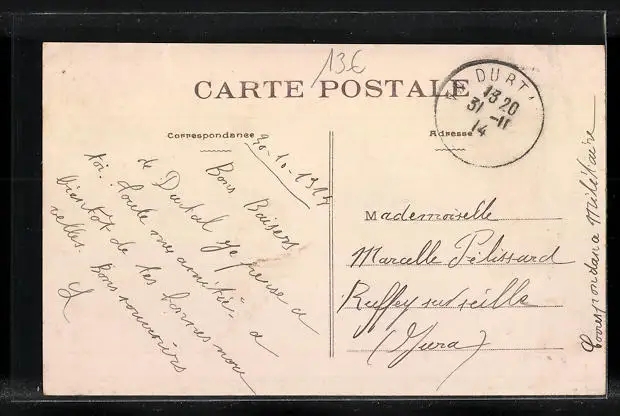 13€
CARTE POSTALE
DURT
13 20
31 -11
14
Correspondance
Adresse
30-10-1914
Bons Baisers
de Durtal Je pense a
toi. Toute mes amitiés. a
bientôt de tes bonnes nou
velles. Bons souvenirs
Mademoiselle
Marcelle Pélissard
Ruffey sur seille
(Jura)
Correspondance Militaire